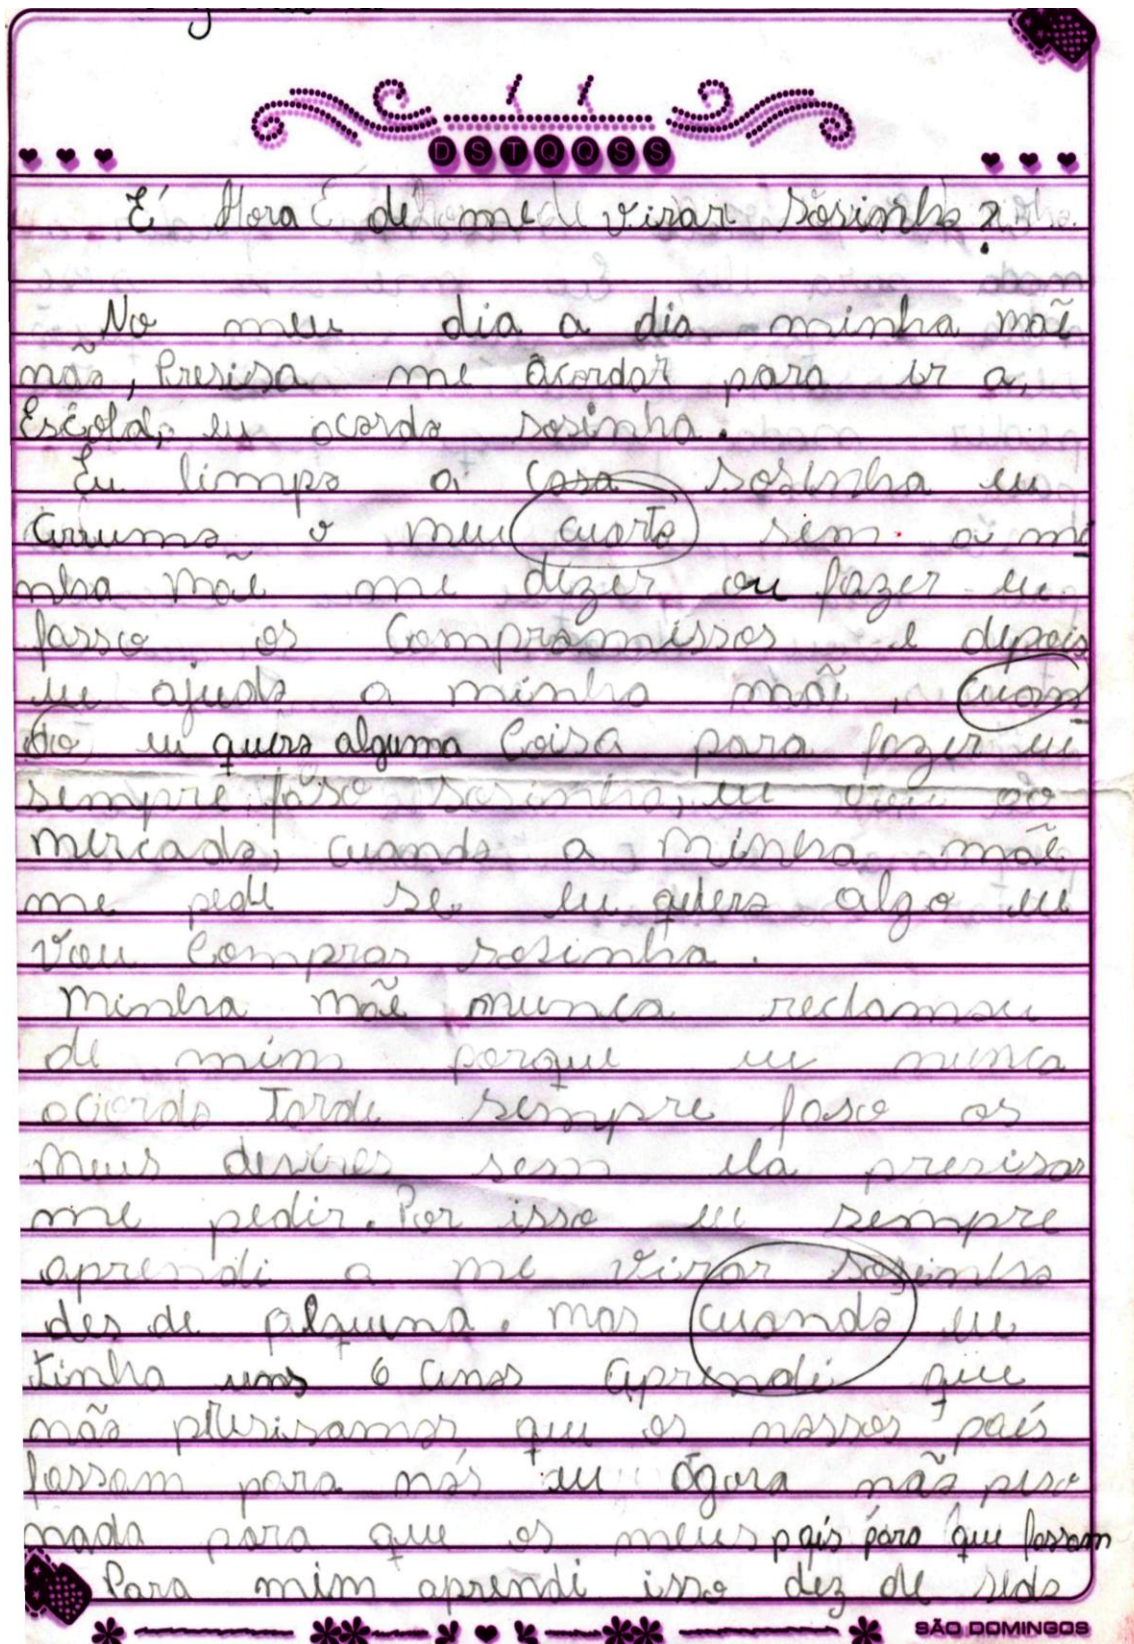 D S T Q Q S S
É Hora de me virar sosinha?
No meu dia a dia minha mãe
não, Presisa me acordar para ir a,
Escola, eu acordo sosinha.
Eu limpo a casa sosinha eu
arrumo o meu cuarto sem a mi
nha mãe me dizer ou fazer eu
fasso os compromissos e depois
eu ajudo a minha mãe, cuan
do eu quero alguma coisa para fazer eu
sempre faso sosinha, eu vou ao
mercado, cuando a minha mãe
me pede se eu quero algo eu
vou comprar sosinha.
Minha mãe nunca reclamou
de mim porque eu nunca
acordo tarde sempre faso os
meus deveres sem ela presisar
me pedir. Por isso eu sempre
aprendi a me virar sosinha
des de pequena. mas cuando eu
tinha uns 6 anos aprendi que
não presisamos que os nossos pais
fassam para nós eu agora não peso
nada para que os meus pais para que fassam
Para mim aprendi isso dez de sedo
SÃO DOMINGOS